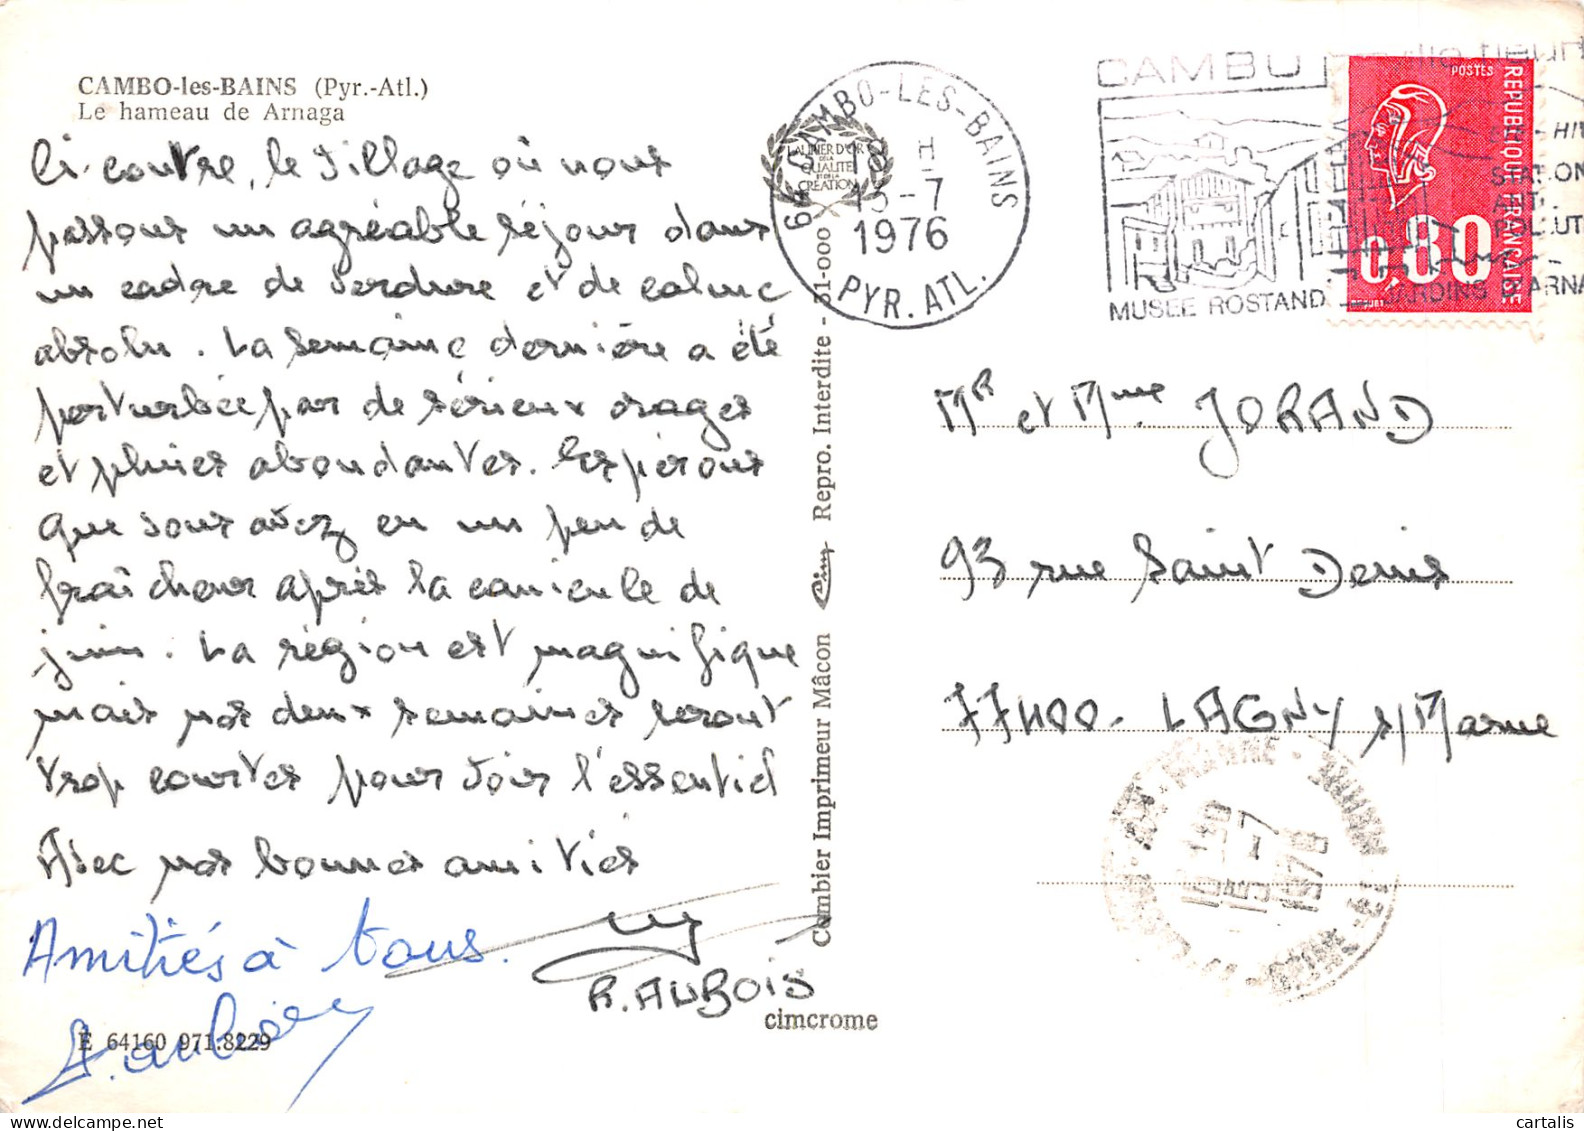 CAMBO-les-BAINS (Pyr.-Atl.)
Le hameau de Arnaga
Ci-contre, le village où nous
passons un agréable séjour dans
un cadre de verdure et de calme
absolu. La semaine dernière a été
perturbée par de sérieux orages
et pluies abondantes. Espérons
que vous avez eu un peu de
fraîcheur après la canicule de
juin. La région est magnifique
mais nos deux semaines seront
trop courtes pour voir l'essentiel
Avec nos bonnes amitiés
Amitiés à tous.
R. AUBOIS
E 64160 971.8229
cimcrome
Combier Imprimeur Mâcon Cim Repro. Interdite - 51-000
LAURIER D'OR
DE LA
QUALITÉ
ET DE LA
CRÉATION
64 CAMBO-LES-BAINS
H
13-7
1976
PYR. ATL.
CAMBO
MUSEE ROSTAND
STATION
ANTI-
POLLUT
JARDINS D'ARNA
POSTES
REPUBLIQUE FRANÇAISE
0,80
Mr et Mme JORAND
93 rue Saint Denis
77400 - LAGNY s/Marne
15-7
1976